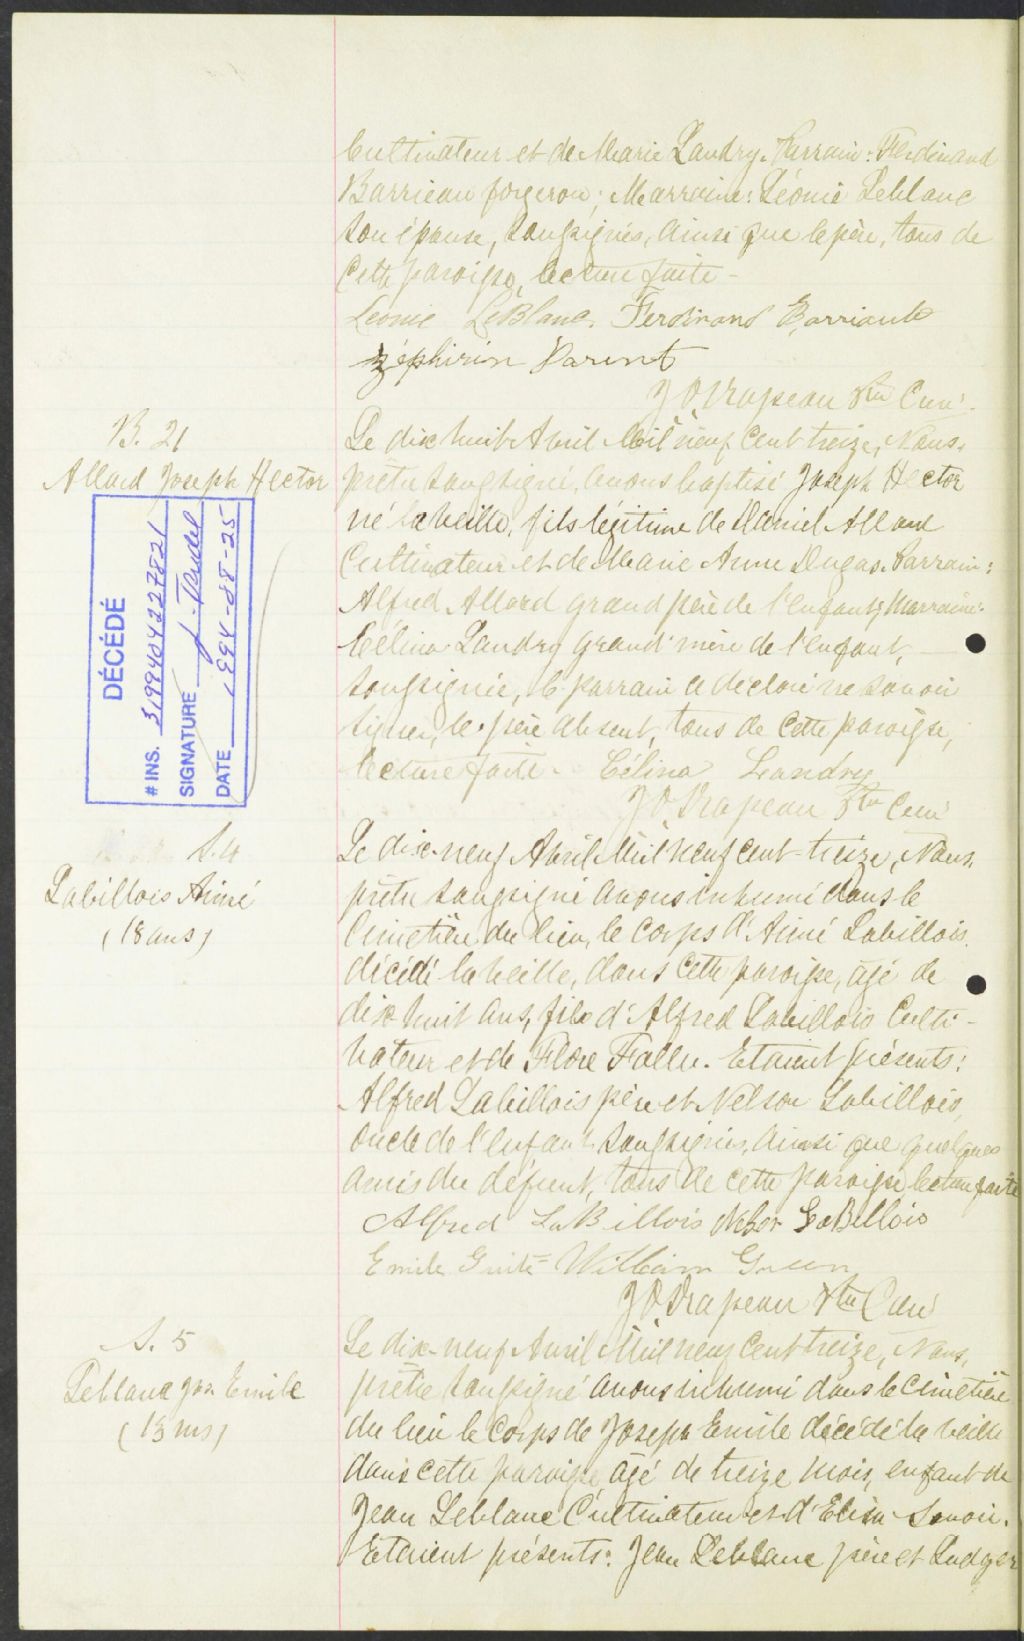 Cultivateur et de Marie Landry. Parrain: Ferdinand
Barrieau forgeron; Marraine: Léonie Leblanc
son épouse, soussignés, ainsi que le père, tous de
cette paroisse, lecture faite -
Léonie LeBlanc. Ferdinand Barriault
Zéphirin Parent
J O Drapeau Ptre Curé.
B. 21
Allard Joseph Hector
Le dix huit Avril Mil neuf cent treize, Nous,
prêtre soussigné, avons baptisé Joseph Hector
né la veille, fils légitime de Daniel Allard
Cultivateur et de Marie Anne Dugas. Parrain:
Alfred Allard grand père de l'enfant; Marraine:
Célina Landry grand'mère de l'enfant, —
soussignée, le parrain a déclaré ne savoir
signer, le père absent, tous de cette paroisse,
lecture faite - Célina Landry
J O Drapeau Ptre Curé
DÉCÉDÉ
# INS. 319940422782
SIGNATURE
DATE 1994-08-25
S. 4
Labillois Aimé
(18 ans)
Le dix-neuf Avril Mil neuf cent-treize, Nous,
prêtre soussigné avons inhumé dans le
Cimetière du lieu, le corps d'Aimé Labillois,
décédé la veille, dans cette paroisse, âgé de
dix huit ans, fils d'Alfred Labillois Culti-
vateur et de Flore Fallu. Etaient présents:
Alfred Labillois père et Nelson Labillois,
oncle de l'enfant soussignés, ainsi que quelques
amis du défunt, tous de cette paroisse lecture faite
Alfred LaBillois LaBillois
Emile Guité = William Green
J O Drapeau Ptre Curé
S. 5
Leblanc Jos Emile
(13 ms)
Le dix-neuf Avril Mil neuf cent treize, Nous,
prêtre soussigné avons inhumé dans le Cimetière
du lieu le corps de Joseph Emile décédé la veille
dans cette paroisse, âgé de treize mois, enfant de
Jean Leblanc Cultivateur et d'Elisa Savoie.
Etaient présents: Jean Leblanc père et Ludger